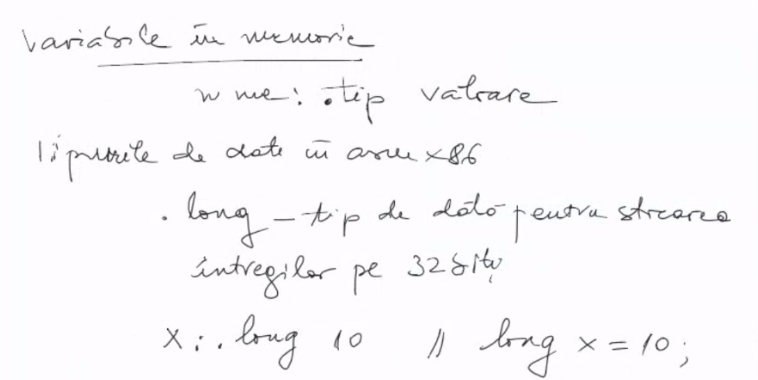 Variabile în memorie
nume: .tip valoare
Tipurile de date în asm x86
. long – tip de dată pentru stocarea
întregilor pe 32 biți
x: .long 10 // long x = 10;